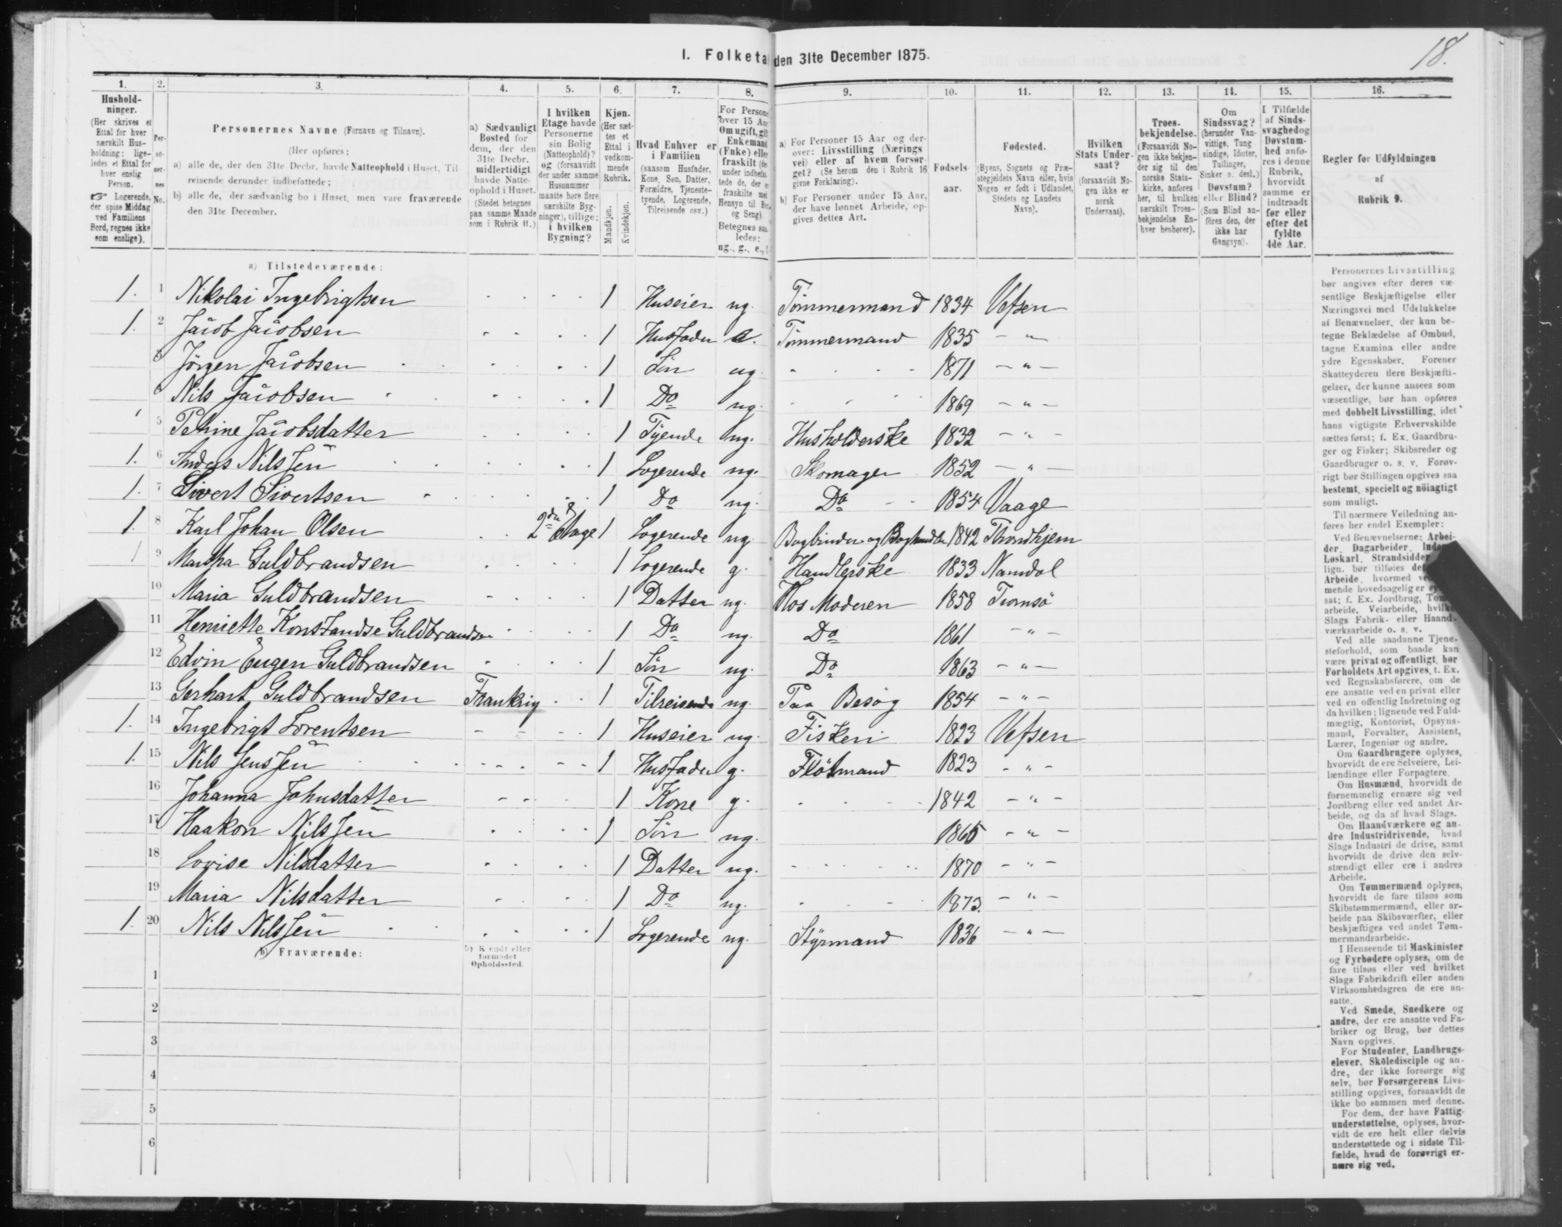 18.
1. Folketa den 31te December 1875.
1. 2. 3. 4. 5. 6. 7. 8. 9. 10. 11. 12. 13. 14. 15. 16.
Hushold-
ninger.
(Her skrives et
Ettal for hver
særskilt Hus-
holdning; lige-
ledes et Ettal for
hver enslig
Person.
☞ Logerende,
der spise Middag
ved Familiens
Bord, regnes ikke
som enslige).
Personernes Navne (Fornavn og Tilnavn).
(Her opføres:
a) alle de, der den 31te Decbr. havde Natteophold i Huset, Til-
reisende derunder indbefattede;
b) alle de, der sædvanlig bo i Huset, men vare fraværende
den 31te December.
a) Sædvanligt
Bosted for
dem, der den
31te Decbr.
midlertidigt
havde Natte-
ophold i Huset.
(Stedet betegnes
paa samme Maade
som i Rubrik 11.)
I hvilken
Etage havde
Personerne
sin Bolig
(Natteophold)?
og (forsaavidt
der under samme
Husnummer
maatte høre flere
særskilte Byg-
ninger), tillige:
i hvilken
Bygning?
Kjøn.
(Her sæt-
tes et
Ettal i
vedkom-
mende
Rubrik.
Mandkjøn.
Kvindekjøn.
Hvad Enhver er
i Familien
(saasom Husfader,
Kone, Søn, Datter,
Forældre, Tjeneste-
tyende, Logerende,
Tilreisende osv.)
a) For Personer 15 Aar og der-
over: Livsstilling (Nærings-
vei) eller af hvem forsør-
get? (Se herom den i Rubrik 16
givne Forklaring).
b) For Personer under 15 Aar,
der have lønnet Arbeide, op-
gives dettes Art.
Fødsels-
aar.
Fødested.
(Byens, Sognets og Præ-
stegjeldets Navn eller, hvis
Nogen er født i Udlandet,
Stedets og Landets
Navn).
Hvilken
Stats Under-
saat?
(forsaavidt No-
gen ikke er
norsk
Undersaat).
Troes-
bekjendelse.
(Forsaavidt No-
gen ikke bekjen-
der sig til den
norske Stats-
kirke, anføres
her, til hvilken
særskilt Troes-
bekjendelse En-
hver henhører).
Om
Sindssvag?
(herunder Van-
vittige, Tung-
sindige, Idioter,
Tullinger,
Sinker o. desl.)
Døvstum?
eller Blind?
(Som Blind an-
føres den, der
ikke har
Gangsyn).
I Tilfælde
af Sinds-
svaghed og
Døvstum-
hed anfø-
res i denne
Rubrik,
hvorvidt
samme er
indtraadt
før eller
efter det
fyldte
4de Aar.
Regler for Udfyldningen
af
Rubrik 9.
a) Tilstedeværende:
1. 1 Nikolai Ingebrigtsen 1 Huseier ug. Tømmermand 1834 Vefsen
1. 2 Jacob Jacobsen 1 Husfader e. Tømmermand 1835 — " —
3 Jörgen Jacobsen 1 Sön ug. 1871 — " —
4 Nils Jacobsen 1 Do ug. 1869 — " —
5 Petrine Jacobsdatter 1 Tyende ug. Husholderske 1832 — " —
1. 6 Anders Nilssen 1 Logerende ug. Skomager 1852 — " —
1. 7 Sivert Sivertsen 1 Do ug. Do 1854 Vaage
1. 8 Karl Johan Olsen 2den Etage 1 Logerende ug Bogbinder og Boghandler 1842 Throndhjem
1 9 Martha Guldbrandsen 1 Logerende g. Handlerske 1833 Namdal
10 Maria Guldbrandsen 1 Datter ug. Hos Moderen 1858 Tromsö
11 Henriette Konstandse Guldbrandsen 1 Do ug. Do 1861 — " —
12 Edvin Eugen Guldbrandsen 1 Sön ug. Do 1863 — " —
13 Gerhart Guldbrandsen Frankrig 1 Tilreisende ug. Paa Besög 1854 — " —
1. 14 Ingebrigt Lorentsen 1 Huseier ug. Fiskeri 1823 Vefsen
1. 15 Nils Jenssen 1 Husfader g. Flötmand 1823 — " —
16 Johanna Johnsdatter 1 Kone g. 1842 — " —
17 Haakon Nilssen 1 Sön ug. 1865 — " —
18 Lovise Nilsdatter 1 Datter ug. 1870 — " —
19 Maria Nilsdatter 1 Do ug. 1873. — " —
1. 20 Nils Nilssen 1 Logerende ug. Styrmand 1836 — " —
b) Fraværende:
b) Kjendt eller
formodet
Opholdssted.
1
2
3
4
5
6
Personernes Livsstilling
bør angives efter deres væ-
sentlige Beskjæftigelse eller
Næringsvei med Udelukkelse
af Benævnelser, der kun be-
tegne Beklædelse af Ombud,
tagne Examina eller andre
ydre Egenskaber. Forener
Skatteyderen flere Beskjæfti-
gelser, der kunne ansees som
væsentlige, bør han opføres
med dobbelt Livsstilling, idet
hans vigtigste Erhvervskilde
sættes først; f. Ex. Gaardbru-
ger og Fisker; Skibsreder og
Gaardbruger o. s. v. Forøv-
rigt bør Stillingen opgives saa
bestemt, specielt og nöiagtigt
som muligt.
Til nærmere Veiledning an-
føres her endel Exempler:
Ved Benævnelserne: Arbei-
der, Dagarbeider,
Løskarl, Strandsidder
lign. bør tilføies
Arbeide, hvormed
mende hovedsagelig er
sat; f. Ex. Jordbrug,
arbeide, Veiarbeide,
Slags Fabrik- eller Haand-
værksarbeide o. s. v.
Ved alle saadanne Tjene-
steforhold, som baade kan
være privat og offentligt, bør
Forholdets Art opgives, f. Ex.
ved Regnskabsførere, om de
ere ansatte ved en privat eller
ved en offentlig Indretning og
da hvilken; lignende ved Fuld-
mægtig, Kontorist, Opsyns-
mand, Forvalter, Assistent,
Lærer, Ingeniør og andre.
Om Gaardbrugere oplyses,
hvorvidt de ere Selveiere, Lei-
lændinge eller Forpagtere.
Om Husmænd, hvorvidt de
fornemmelig ernære sig ved
Jordbrug eller ved andet Ar-
beide, og da af hvad Slags.
Om Haandværkere og an-
dre Industridrivende, hvad
Slags Industri de drive, samt
hvorvidt de drive den selv-
stændigt eller ere i andres
Arbeide.
Om Tømmermænd oplyses,
hvorvidt de fare tilsøs som
Skibstømmermænd, eller ar-
beide paa Skibsværfter, eller
beskjæftiges ved andet Tøm-
mermandsarbeide.
I Henseende til Maskinister
og Fyrbødere oplyses, om de
fare tilsøs eller ved hvilket
Slags Fabrikdrift eller anden
Virksomhedsgren de ere an-
satte.
Ved Smede, Snedkere og
andre, der ere ansatte ved Fa-
briker og Brug, bør dettes
Navn opgives.
For Studenter, Landbrugs-
elever, Skoledisciple og an-
dre, der ikke forsørge sig
selv, bør Forsørgerens Livs-
stilling opgives, forsaavidt de
ikke bo sammen med denne.
For dem, der have Fattig-
understøttelse, oplyses, hvor-
vidt de ere helt eller delvis
understøttede og i sidste Til-
fælde, hvad de forøvrigt er-
nære sig ved.